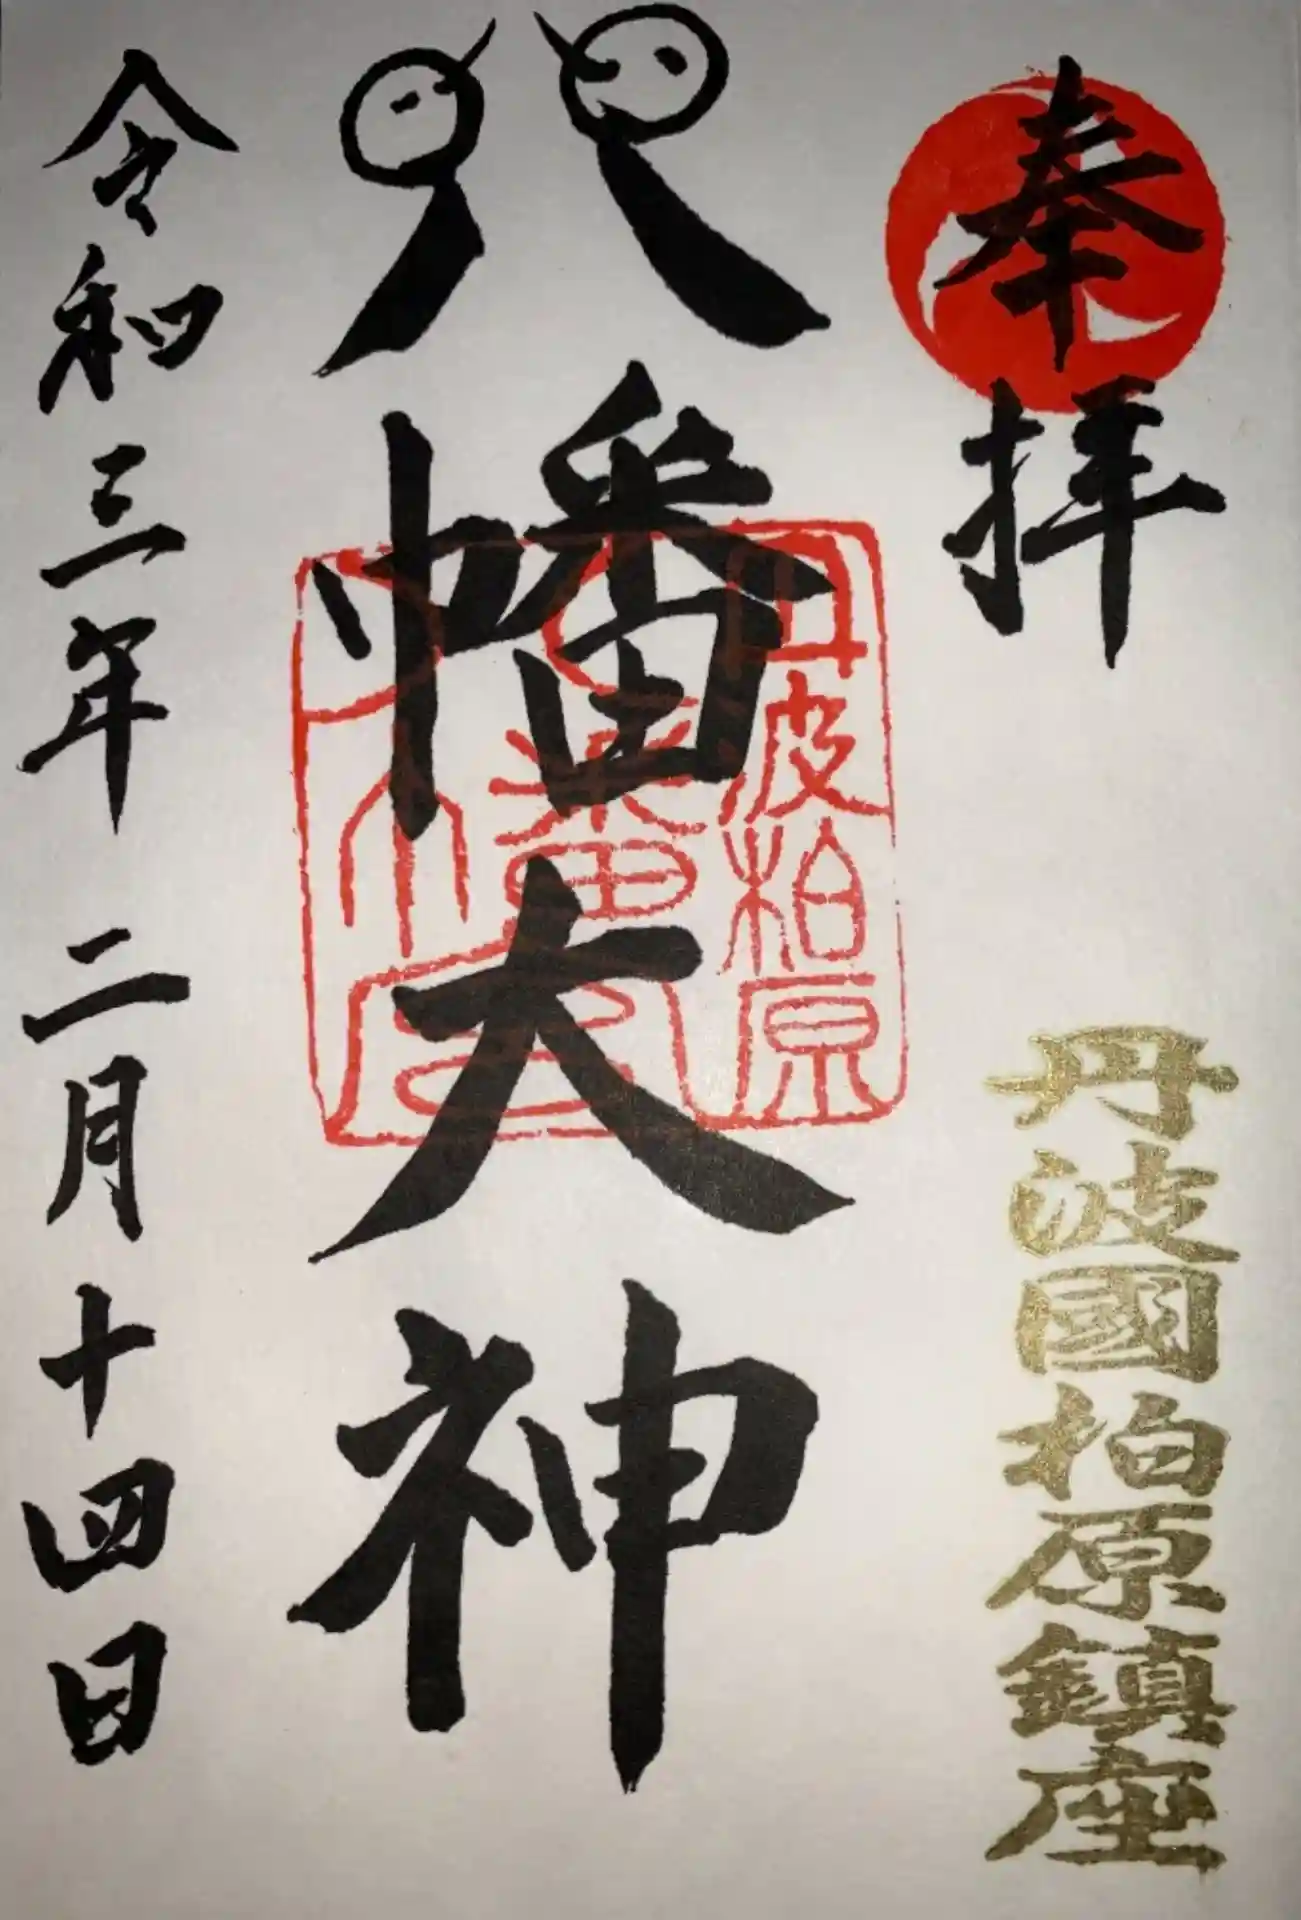 奉拝
丹波國柏原鎮座
八幡大神
丹波柏原
八幡
令和三年二月十四日